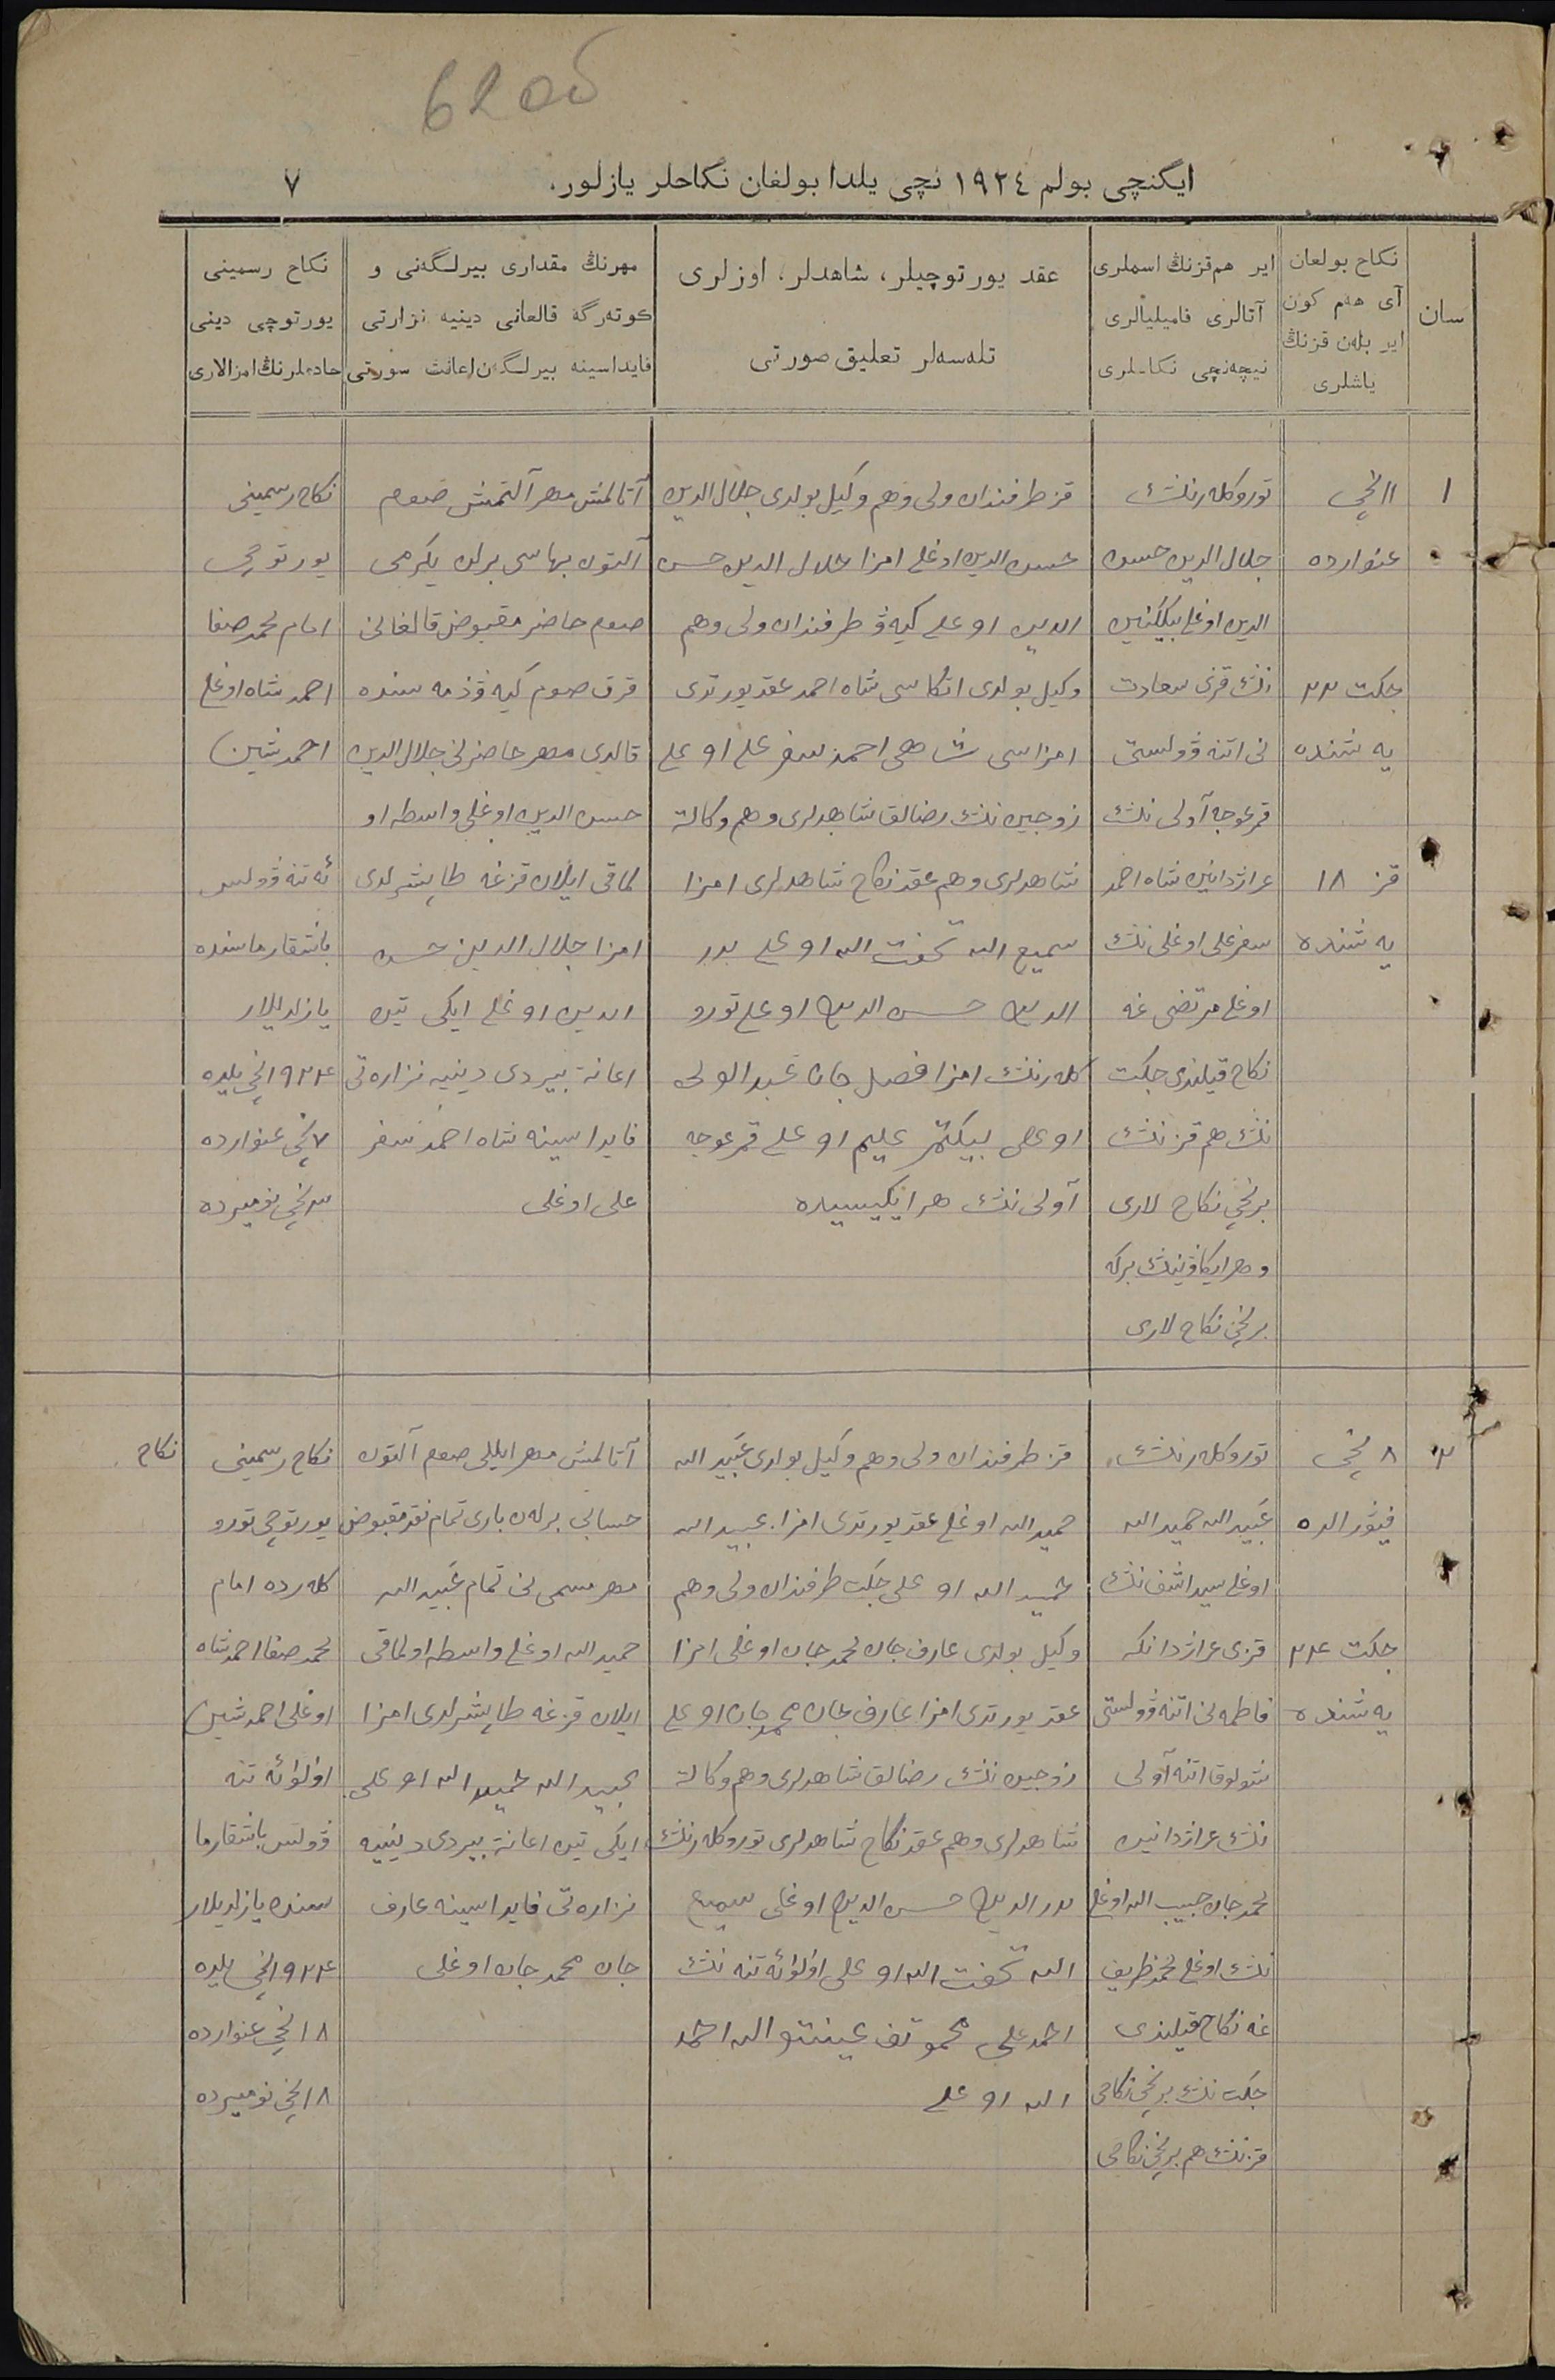 620об
ایگنچی بولم ١٩٢٤ نچی یلدا بولغان نکاحلر یازلور.
٧
سان
نکاح بولغان
آی هەم کون
ایر بلەن قزنڭ
یاشلری
ایر هم قزنڭ اسملری
آتالری فامیلیالری
نیچەنچی نکاحلری
عقد یورتوچیلر، شاهدلر، اوزلری
تلەسەلر تعلیق صورتی
مهرنڭ مقداری بیرلگەنی و
کوتەرگە قالغانی دینیه نزارتی
فایداسینه بیرلگەن اعانت سورتی
نکاح رسمینی
یورتوچی دینی
خادملرنڭ امزالاری
١
١١ نچی
عنوارده
جکت ٢٢
یه شنده
قز ١٨
یه شنده
توروکله رننڭ
جلال الدین حسن
الدین اوغلی
ننڭ قزی سعادت
نی اتنه ڤولستی
آولی ننڭ
شاه احمد
سفرعلی اوغلی ننڭ
اوغلی مرتضی غه
نکاح قیلندی جکت
ننڭ هم قز ننڭ
برنچی نکاح لاری
برنچی نکاح لاری
قز طرفندان ولی وهم وکیل بولدی جلال الدین
حسن الدین اوغلی امزا جلال الدین حسن
الدین اوغلی کیەۋ طرفندان ولی وهم
وکیل بولدی اتکاسی شاه احمد عقد یورتدی
امزاسی شاهی احمد سفر علی اوغلی
زوجین ننڭ رضالق شاهدلری وهم وکالة
شاهدلری وهم عقد نکاح شاهدلری امزا
سمیع الله تحفت الله اوغلی بدر
الدین حسن الدین اوغلی تورو
کله رننڭ امزا فصیل جان عبد الولی
آولی ننڭ هر ایکیسیده
آتالمش مهر آلتمش صوم
آلتون بهاسی برلن یکرمی
صوم حاضر مقبوض قالغانی
قرق صوم کیەۋ ذمه سنده
قالدی مهر حاضرنی جلال الدین
حسن الدین اوغلی واسطه او
لماقی ایلان قزغه طابشرلدی
امزا جلال الدین حسن
الدین اوغلی ایکی تین
اعانة بیردی دینیه نزاره تی
فایداسینه شاه احمد سفر
علی اوغلی
نکاح رسمینی
یورتوچی
امام محمد صفا
احمد شاه اوغلی
احمدشین)
ئه تنه ڤولس
باشقارماسنده
یازلدیلار
١٩٢٤ نچی یلده
٧ نچی عنوارده
نچی نومیرده
٢
٨ نچی
فیۋرالده
جکت ٢٤
یه شنده
توروکله رننڭ
عبید الله حمید الله
اوغلی ننڭ
قزی
فاطمه نی اتنه ڤولستی
اتنه آولی
ننڭ
محمد جان حبیب الله اوغلی
ننڭ اوغلی محمد ظریف
غه نکاح قیلندی
جکت ننڭ برنچی نکاحی
قز ننڭ هم برنچی نکاحی
قز طرفندان ولی وهم وکیل بولدی عبید الله
حمید الله اوغلی عقد یورتدی امزا. عبید الله
حمید الله اوغلی جکت طرفندان ولی وهم
وکیل بولدی عارف جان محمد جان اوغلی امزا
عقد یورتدی امزا عارف جان محمد جان اوغلی
زوجین ننڭ رضالق شاهدلری وهم وکالة
شاهدلری وهم عقد نکاح شاهدلری توروکله رننڭ
بدر الدین حسن الدین اوغلی سمیع
الله تحفت الله اوغلی اولوئه تنه ننڭ
احمد علی
الله اوغلی
آتالمش مهر ایللی صوم آلتون
حسابی برله ن باری تمام نقد مقبوض
مهر مسمی نی تمام عبید الله
حمید الله اوغلی واسطه اولماقی
ایلان قزغه طابشرلدی امزا
عبید الله حمید الله اوغلی
ایکی تین اعانة بیردی دینیه
نزاره تی فایداسینه عارف
جان محمد جان اوغلی
نکاح رسمینی
یورتوچی تورو
کله رده امام
محمد صفا احمد شاه
اوغلی احمدشین)
اولوئه تنه
ڤولس باشقارما
سنده یازلدیلار
١٩٢٤ نچی یلده
١٨ نچی عنوارده
١٨ نچی نومیرده
نکاح